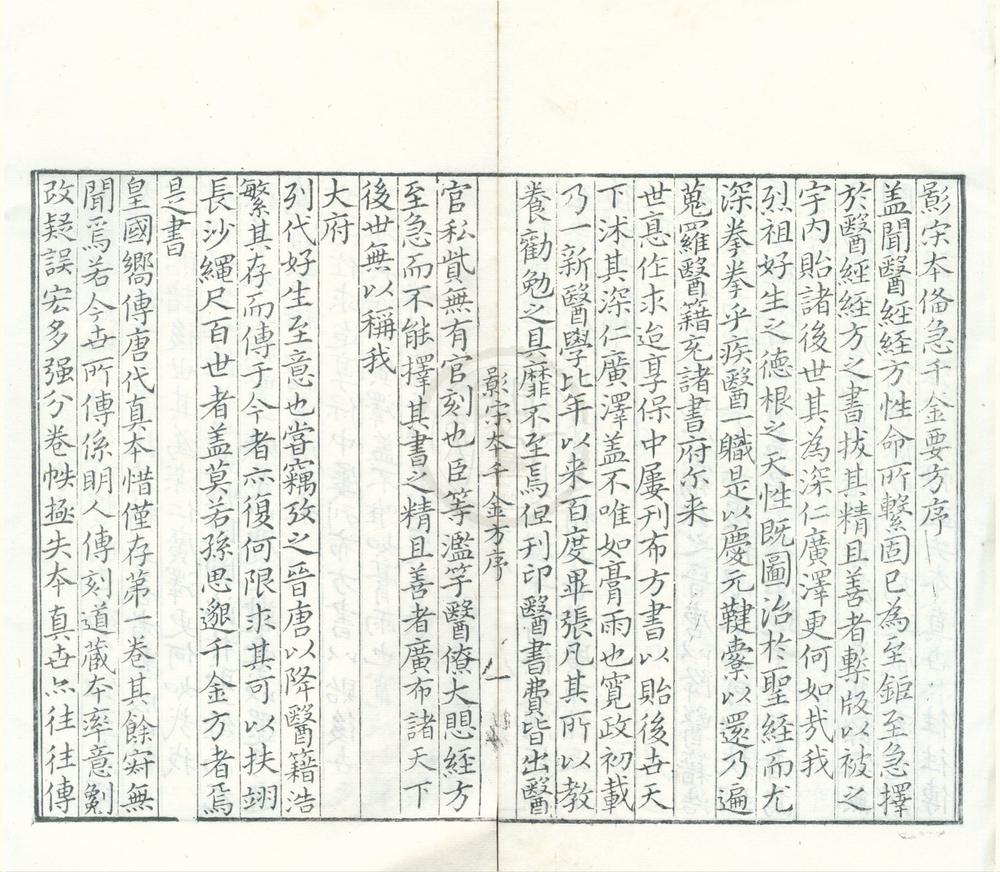 影宋本備急千金要方序
盖聞醫經經方性命所繫固已為至鉅至急擇
於醫經經方之書拔其精且善者鋟版以被之
宇内貽諸後世其為深仁廣澤更何如㢤我
烈祖好生之德根之天性既圖治扵聖經而尤
深拳拳乎疾醫一職是以慶元鞬櫜以還乃遍
蒐羅醫籍充諸書府尓来
世悳作求迨享保中屢刊布方書以貽後世天
下沭其深仁廣澤盖不唯如膏雨也寛政初載
乃一新醫學比年以来百度畢張凡其所以教
養勸勉之具靡不至焉但刊印醫書費皆出醫
影宋本千金方序
一
官私貲無有官刻也臣等濫竽醫僚大懼經方
至急而不能擇其書之精且善者廣布諸天下
後世無以稱我
大府
列代好生至意也甞竊攷之晉唐以降醫籍浩
繁其存而傳于今者亦復何限求其可以扶翊
長沙繩尺百世者盖莫若孫思邈千金方者焉
是書
皇國嚮傳唐代真本惜僅存第一卷其餘寂無
聞焉若今世所傳係明人傳刻道蔵本率意劖
改疑誤宏多强分卷帙極失本真世亦往往傳